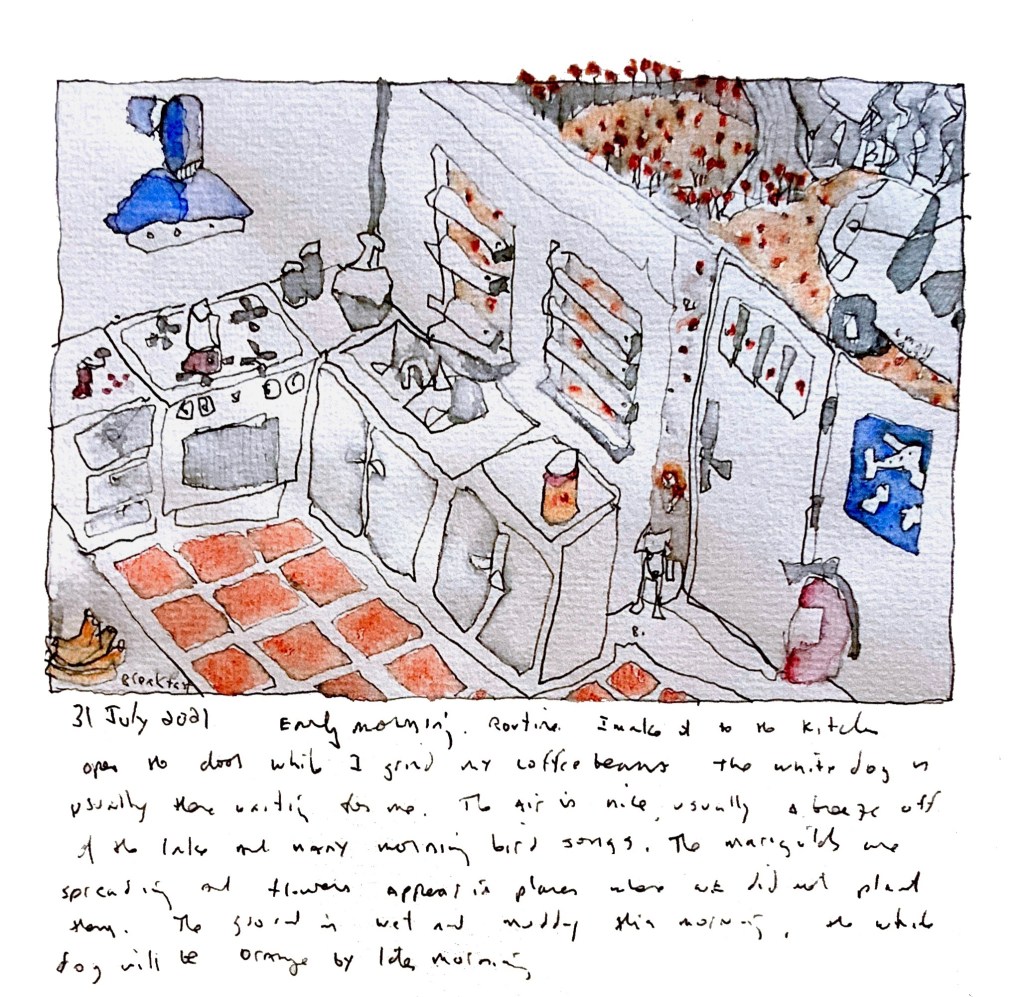 Breakfast
B.
31 July 2021 Early morning. Routine. I make it to the kitchen
open the door while I grind my coffee beans the white dog is
usually there waiting for me. The air is nice, usually a breeze off
of the lake and many morning bird songs. The marigolds are
spreading and flowers appear in places where we did not plant
them. The ground is wet and muddy this morning, the white
dog will be orange by late morning